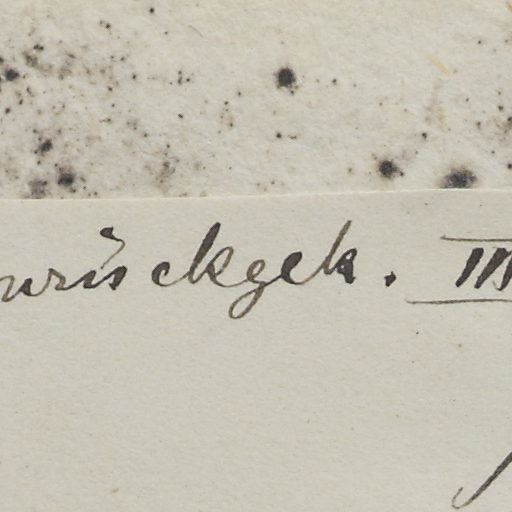 zurückgek. III